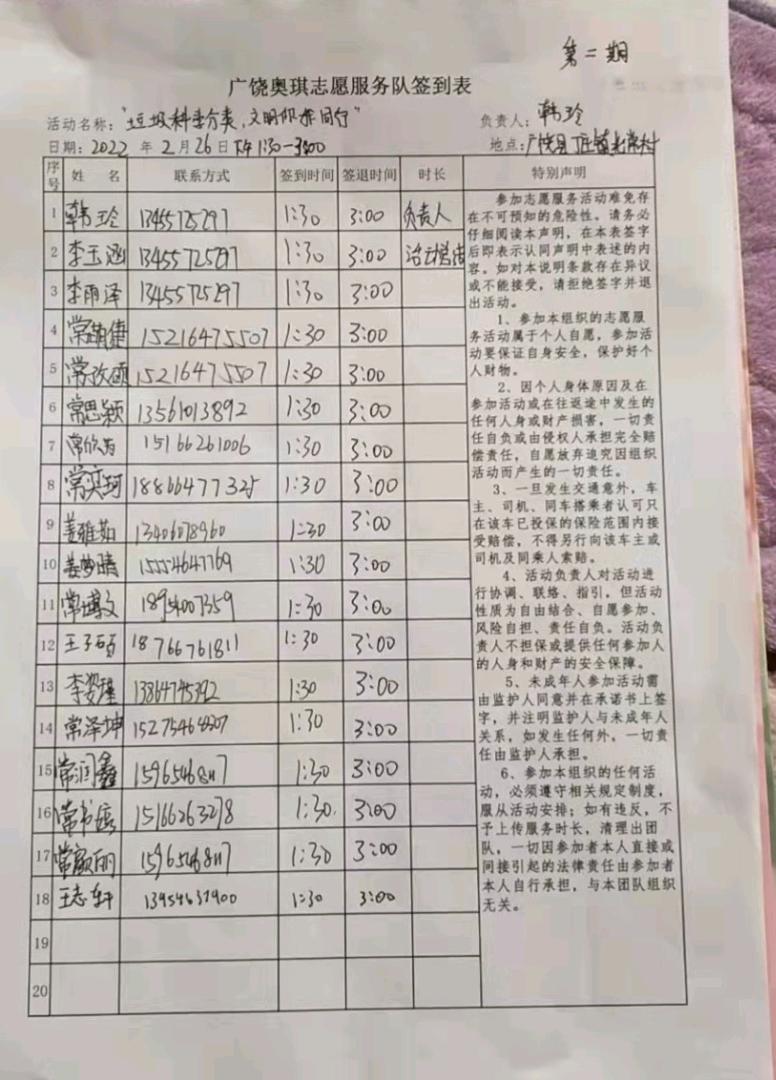 第二期
广饶奥琪志愿服务队签到表
活动名称:"垃圾科学分类,文明你我同行"
负责人:韩玲
日期:2022 年 2 月 26 日 下午 1:30-3:00
地点:广饶县
序号 姓 名 联系方式 签到时间 签退时间 时长 特别声明
1 韩玲 13455725297 1:30 3:00 负责人
2 李玉涵 13455725297 1:30 3:00
3 李雨泽 13455725297 1:30 3:00
4 15216475507 1:30 3:00
5 15216475507 1:30 3:00
6 常思颖 13561013892 1:30 3:00
7 15166261006 1:30 3:00
8 常奕珂 18866477325 1:30 3:00
9 姜雅茹 13406078960 1:30 3:00
10 姜梦晴 15554647769 1:30 3:00
11 常博文 1:30 3:00
12 18766761811 1:30 3:00
13 李姿瑾 1:30 3:00
14 常泽坤 1:30 3:00
15 常润鑫 1:30 3:00
16 15166263278 1:30 3:00
17 1:30 3:00
18 王志轩 13954631900 1:30 3:00
19
20
参加志愿服务活动难免存
在不可预知的危险性。请务必
仔细阅读本声明,在本表签字
后即表示认同声明中表述的内
容。如对本说明条款存在异议
或不能接受,请拒绝签字并退
出活动。
1、参加本组织的志愿服
务活动属于个人自愿,参加活
动要保证自身安全,保护好个
人财物。
2、因个人身体原因及在
参加活动或在往返途中发生的
任何人身或财产损害,一切责
任自负或由侵权人承担完全赔
偿责任,自愿放弃追究因组织
活动而产生的一切责任。
3、一旦发生交通意外,车
主、司机、同车搭乘者认可只
在该车已投保的保险范围内接
受赔偿,不得另行向该车主或
司机及同乘人索赔。
4、活动负责人对活动进
行协调、联络、指引,但活动
性质为自由结合、自愿参加、
风险自担、责任自负。活动负
责人不担保或提供任何参加人
的人身和财产的安全保障。
5、未成年人参加活动需
由监护人同意并在承诺书上签
字,并注明监护人与未成年人
关系,如发生任何外,一切责
任由监护人承担。
6、参加本组织的任何活
动,必须遵守相关规定制度,
服从活动安排;如有违反,不
予上传服务时长,清理出团
队,一切因参加者本人直接或
间接引起的法律责任由参加者
本人自行承担,与本团队组织
无关。